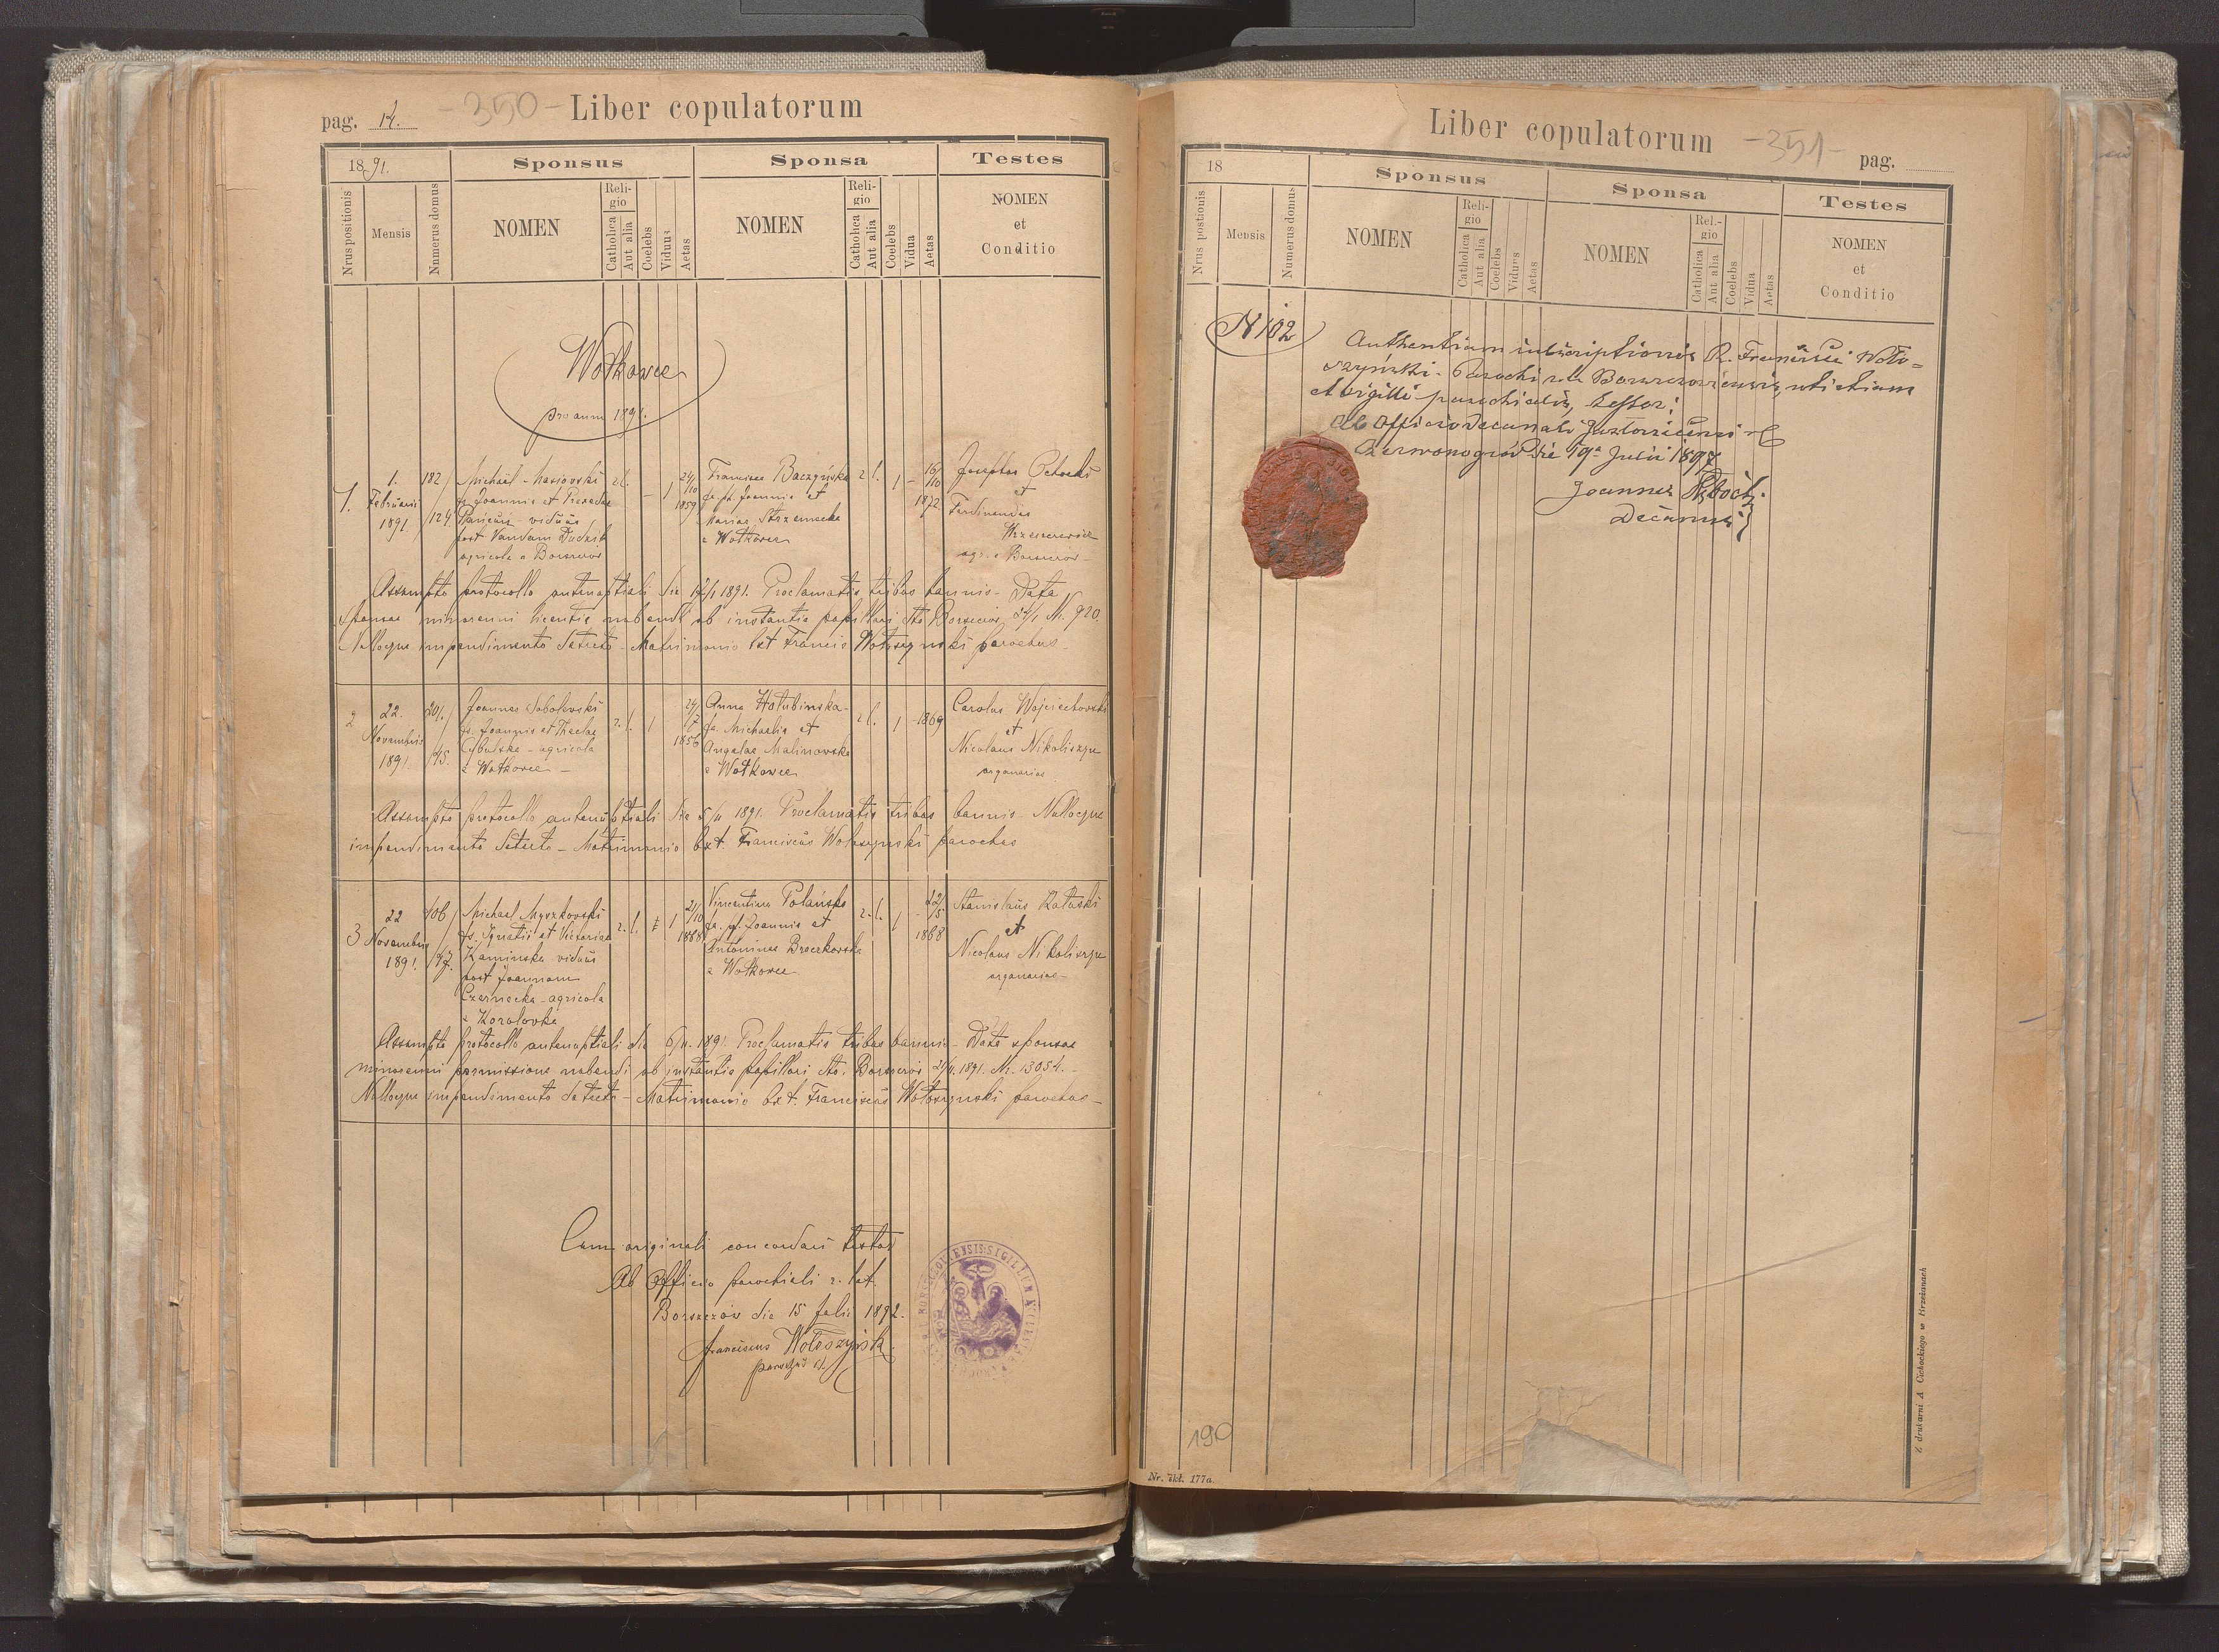 pag. 14. -350- Liber copulatorum
1891. Sponsus Sponsa Testes
Nrus positionis Mensis Nnmerus domus NOMEN Religio Catholica Aut alia Coelebs Viduus Aetas NOMEN Religio Catholica Aut alia Coelebs Vidua Aetas NOMEN et Conditio
Wołkowce
pro anno 1891.
1.
1.
Februarii
1891
182/
/124
Michaël
fs. Joannis et
viduus
post Vandam Dudzik
agricola a Borszczów
r. l. - 1
24/10
1859
Francisca Baczyńska
fa. pt. Joannis et
Mariae Strzemecka
a Wołkowce
r. l. 1 -
16/10
1872
Josephus
et
Ferdinandus
agr. a Borszczów
Assumpto protocollo antenuptiali die 12/1 1891. Proclamatis tribus bannis - Data
sponsae minorenni licentia nubendi ab instantia pupillari dto Borszczów 24/1 N. 920.
Nulloque impendimento detecto - Matrimonio bxt Francis Wołoszyński parochus -
2
22.
Novembris
1891.
201./
/45.
Joannes Sobolewski
fs. Joannis et Theclae
Cybulska - agricola
a Wołkowce -
r. l. 1
24/7
1856
Anna Hołubinska -
fa. Michaelis et
Angelae Malinowska
a Wołkowce
r. l. 1 - 1869
Carolus Wojciechowski
et
Nicolaus Nikoliszyn
organarius
Assumpto protocollo antenuptiali die 5/11 1891. Proclamatis tribus bannis - Nulloque
impendimento detecto - Matrimonio bxt. Franciscus Wołoszynski parochus
3
22
Novembris
1891.
106/
/47.
Michael Myszkowski
fs. Ignatii et Victoriae
Kaminska viduus
post Joannam
Czarnecka - agricola
a Korolovka
r. l. 1
21/10
1868
Vincentina Polańska
fa. pt. Joannis et
Antoninae Broczkowska
a Wołkowce
r. l. 1 -
22/5
1868
Stanislaus Kałuski
et
Nicolaus Nikoliszyn
organarius -
Assumpto protocollo antenuptiali die 6/11. 1891. Proclamatis tribus bannis - Data sponsae
minorenni permissione nubendi ab instantia pupillari dto. Borszczów 21/11. 1891. N. 13054. -
Nulloque impendimento detecto - Matrimonio bxt. Franciscus Wołoszynski parochus -
Cum originali concordare testor
Ab Officio parochiali r. lat.
Borszczów die 15 Julii 1892.
Franciscus Wołoszyński
parochus
Liber copulatorum -351- pag.
18 Sponsus Sponsa Testes
Nrus postionis Mensis Numerus domus NOMEN Religio Catholica Aut alia Coelebs Viduus Aetas NOMEN Rel.-gio Catholica Aut alia Coelebs Vidua Aetas NOMEN et Conditio
N 102
Authentiam inscriptionis R. Francisci Woło=
szyński - Parochi r. l. Borszczoviensis, uti etiam
et sigilli parochialis, testor.
Ab Officio Decanali Jazłoviciensi r. l.
Czerwonogród die 19ª Julii 1897
Joannes
Decanus
190
Nr. skł. 177a.
Z drukarni A Cichockiego w Brzeżanach